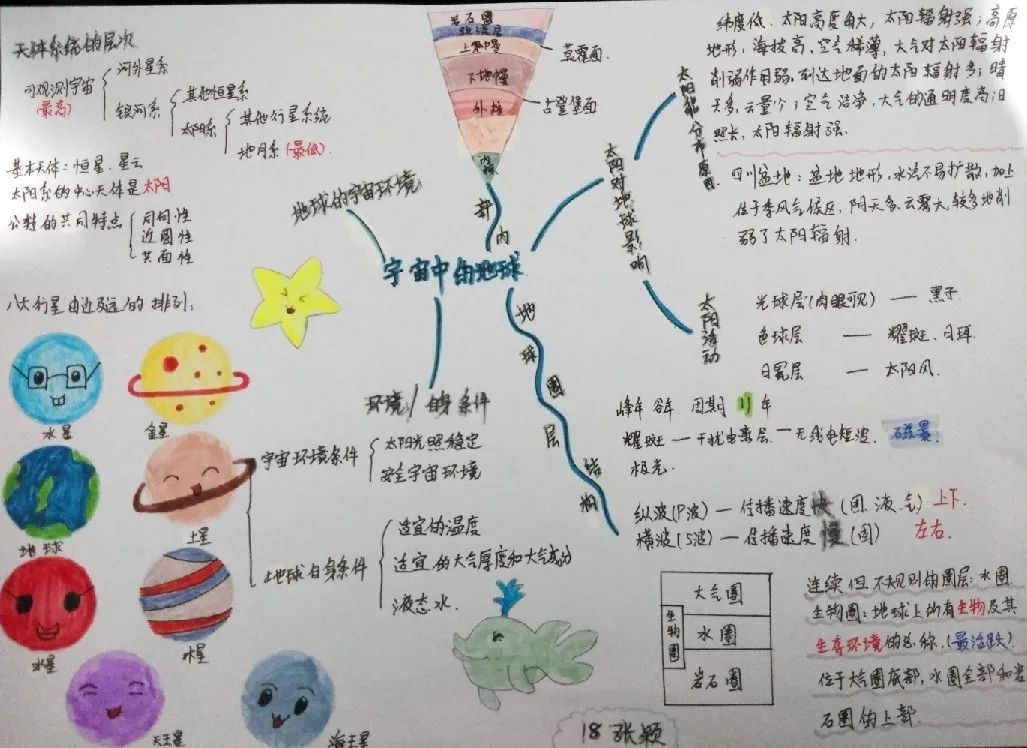 天体系统的层次
可观测宇宙
(最高)
河外星系
银河系
其他恒星系
太阳系
其他行星系统
地月系(最低)
基本天体:恒星.星云
太阳系的中心天体是太阳
公转的共同特点
同向性
近圆性
共面性
八大行星由近及远的排列:
水星
金星
地球
土星
木星
天王星
海王星
地球的宇宙环境
宇宙中的地球
岩石圈
软流层
上地幔
下地幔
外核
内核
莫霍面
古登堡面
内部
地球圈层结构
环境 的条件
宇宙环境条件
太阳光照稳定
安全宇宙环境
地球自身条件
适宜的温度
适宜的大气厚度和大气成分
液态水.
太阳对地球影响
太阳能分布原因
纬度低、太阳高度角大,太阳辐射强;高原
地形,海拔高,空气稀薄,大气对太阳辐射
削弱作用弱,到达地面的太阳辐射多;晴
天多,云量少;空气洁净,大气的透明度高;日
照长,太阳辐射强.
四川盆地:盆地地形,水汽不易扩散,加上
位于季风气候区,阴天多.云雾大,较多地削
弱了太阳辐射.
太阳活动
光球层(肉眼可见) — 黑子
色球层 — 耀斑.日珥
日冕层 — 太阳风.
峰年 谷年 周期11年
耀斑—干扰电离层—无线电短波. 磁暴
极光.
纵波(P波)—传播速度快(固.液.气)上下.
横波(S波)—传播速度慢(固) 左右.
大气圈
生物圈
水圈
岩石圈
连续但不规则的圈层:水圈
生物圈:地球上所有生物及其
生存环境的总称.(最活跃)
位于大气圈底部,水圈全部和岩
石圈的上部.
18张颖